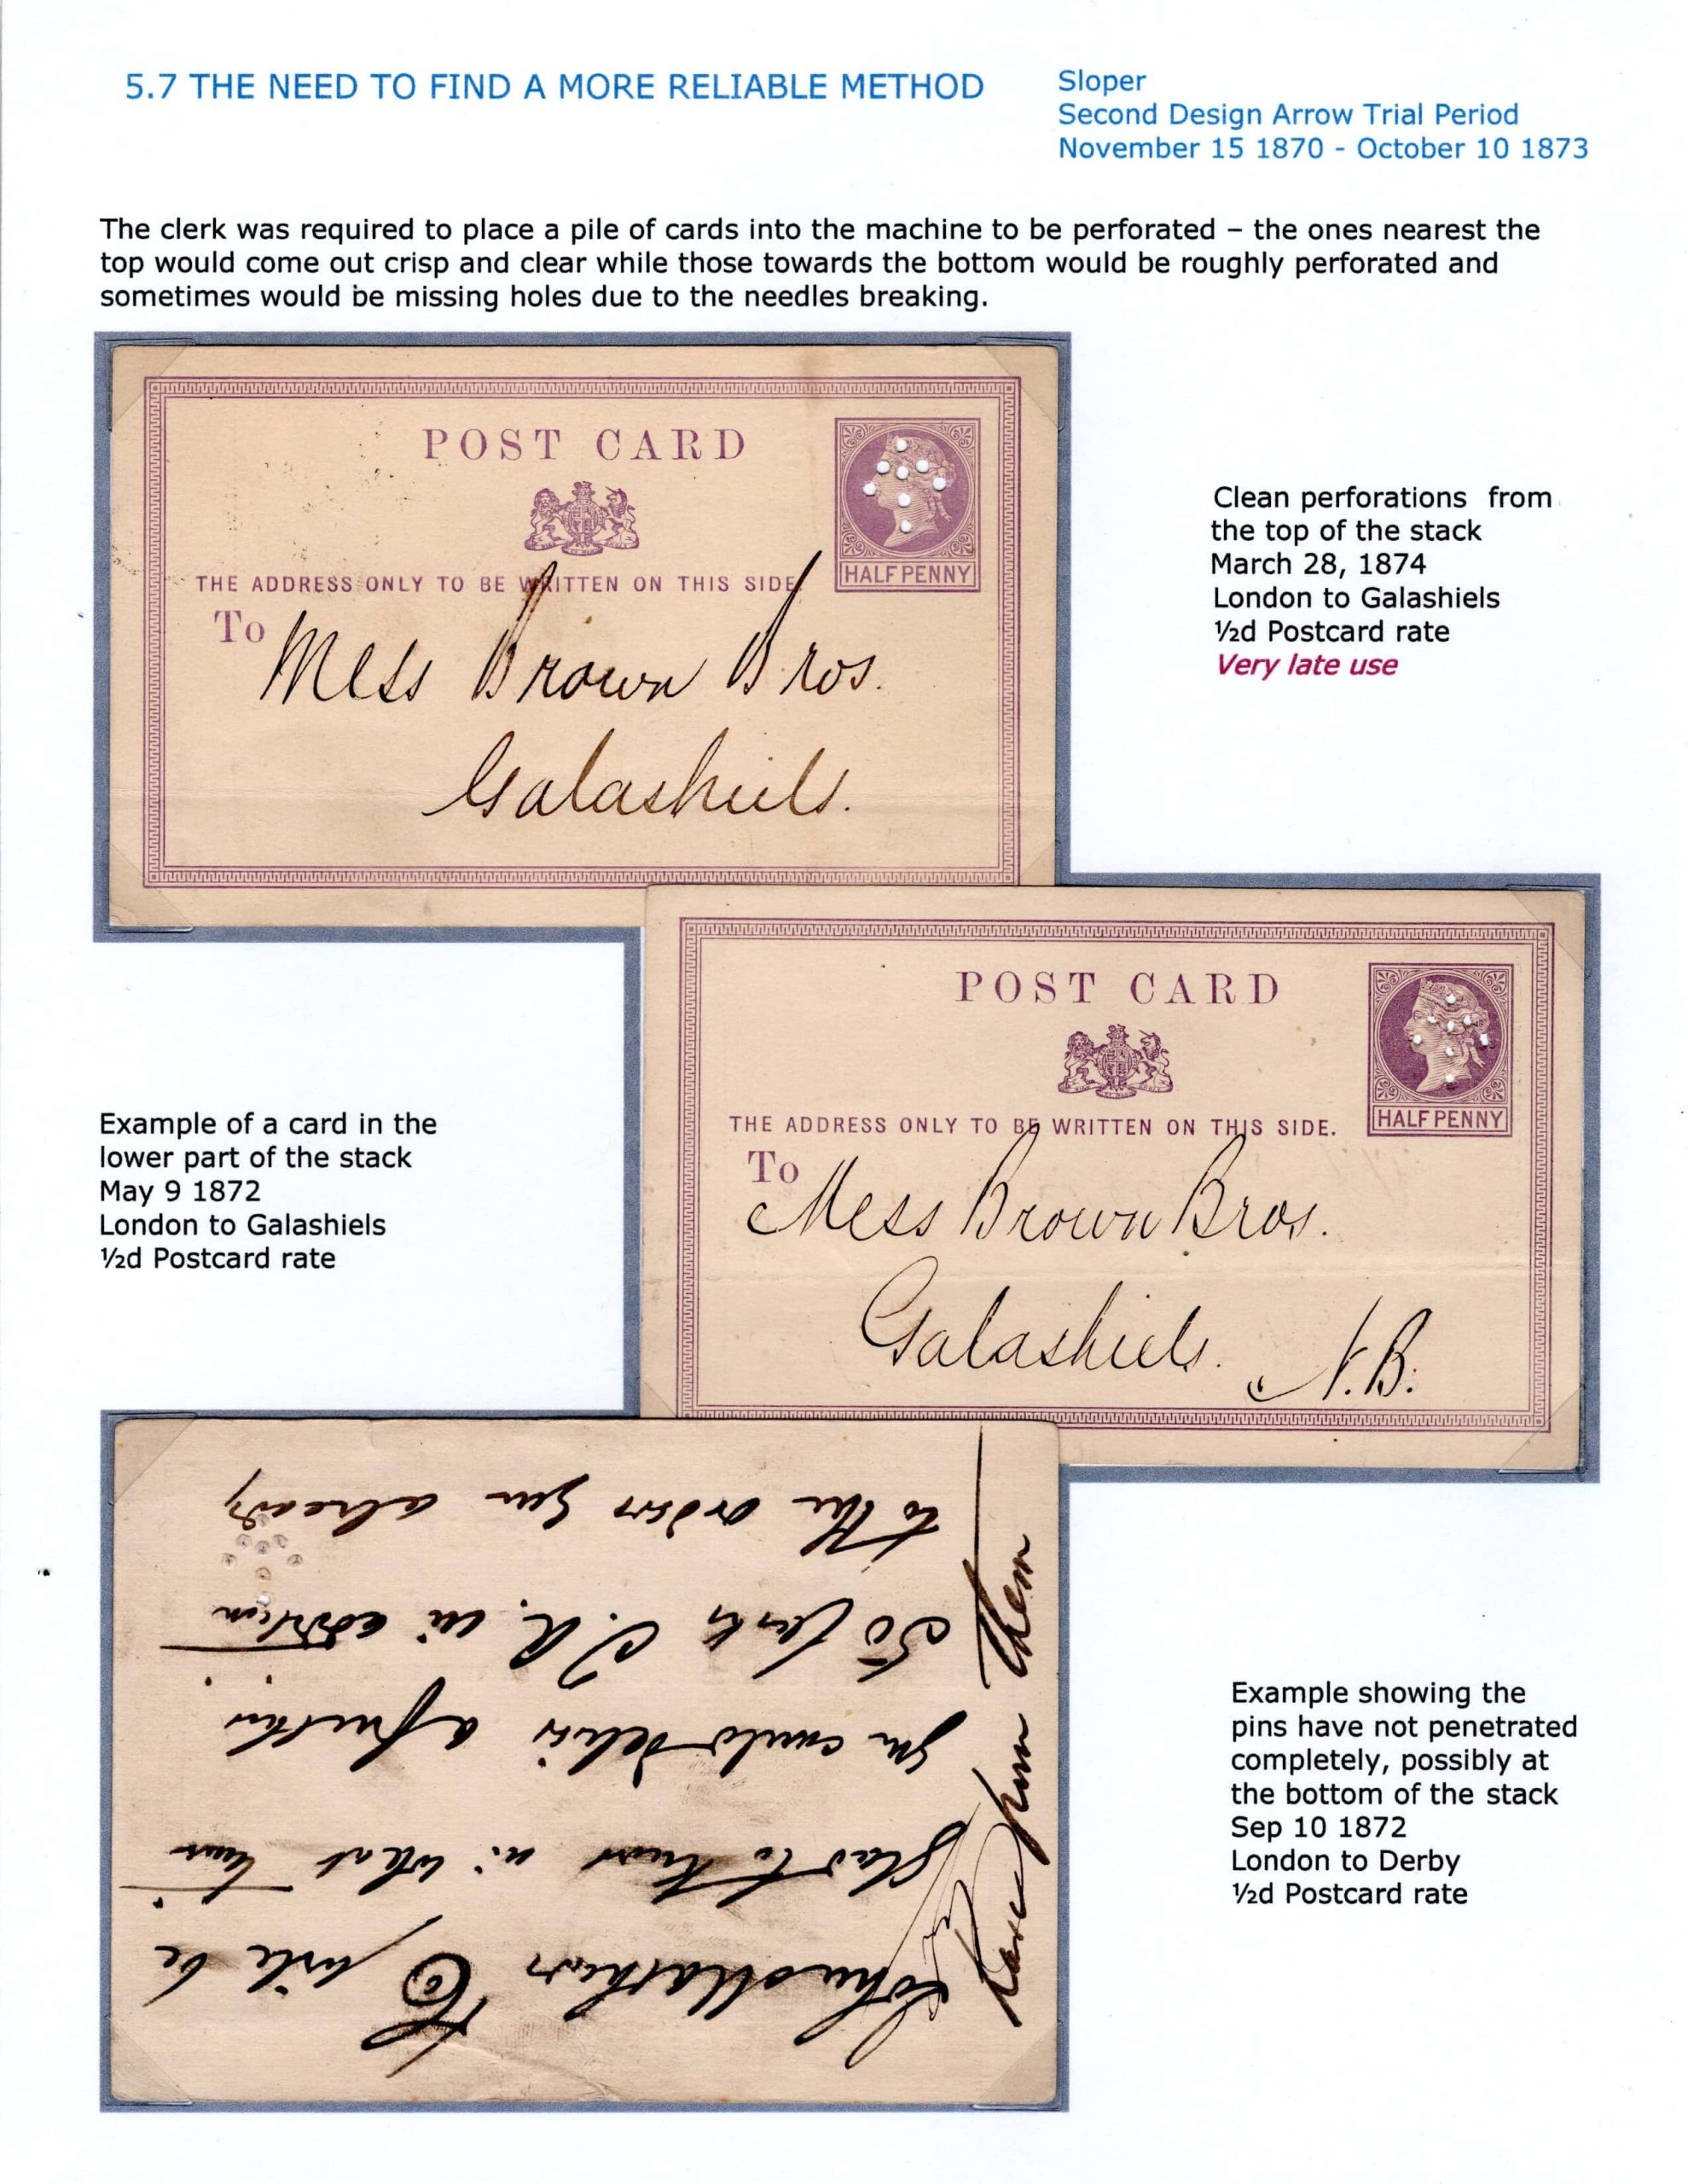 5.7 THE NEED TO FIND A MORE RELIABLE METHOD
Sloper
Second Design Arrow Trial Period
November 15 1870 - October 10 1873
The clerk was required to place a pile of cards into the machine to be perforated – the ones nearest the
top would come out crisp and clear while those towards the bottom would be roughly perforated and
sometimes would be missing holes due to the needles breaking.
POST CARD
HALFPENNY
THE ADDRESS ONLY TO BE WRITTEN ON THIS SIDE.
To
Mess Brown Bros.
Galashiels.
Clean perforations from
the top of the stack
March 28, 1874
London to Galashiels
½d Postcard rate
Very late use
POST CARD
HALFPENNY
THE ADDRESS ONLY TO BE WRITTEN ON THIS SIDE.
To
Mess Brown Bros.
Galashiels. N.B.
Example of a card in the
lower part of the stack
May 9 1872
London to Galashiels
½d Postcard rate
will be
glad to know in what time
you could deliver a further
50 in addition
to the order you already
have from them
Example showing the
pins have not penetrated
completely, possibly at
the bottom of the stack
Sep 10 1872
London to Derby
½d Postcard rate